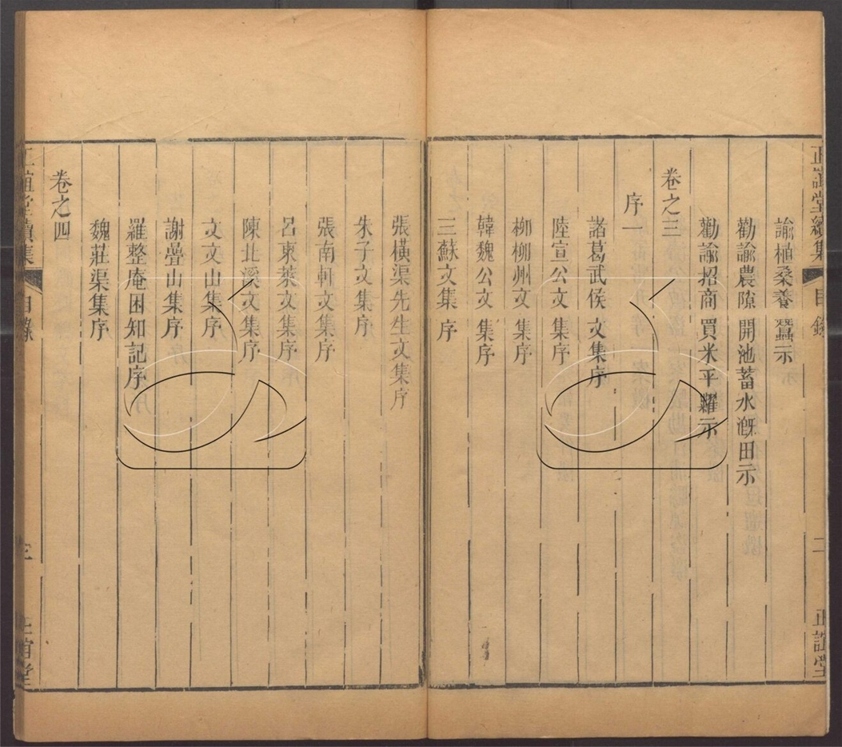 正誼堂續集 目錄 二 正誼堂
諭植桑養蠶示
勸諭農隙開池蓄水漑田示
勸諭招商買米平糶示
卷之三
序一
諸葛武侯文集序
陸宣公文集序
柳柳州文集序
韓魏公文集序
三蘇文集序
張橫渠先生文集序
朱子文集序
張南軒文集序
呂東萊文集序
陳北溪文集序
文文山集序
謝疊山集序
羅整庵困知記序
魏莊渠集序
卷之四
正誼堂續集 目錄 三 正誼堂